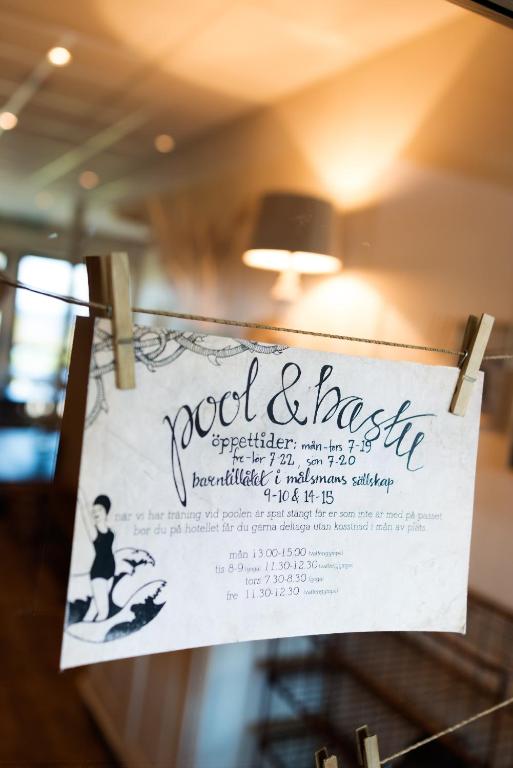 pool & bastu
öppettider: mån-tors 7-19
fre-lör 7-22, sön 7-20
barntillåtet i målsmans sällskap
9-10 & 14-15
när vi har träning vid poolen är spat stängt för er som inte är med på passet
bor du på hotellet får du gärna deltaga utan kostnad i mån av plats.
mån 13.00-15.00 (vattengympa)
tis 8-9 (yoga) 11.30-12.30 (vattengympa)
tors 7.30-8.30 (yoga)
fre 11.30-12.30 (vattengympa)